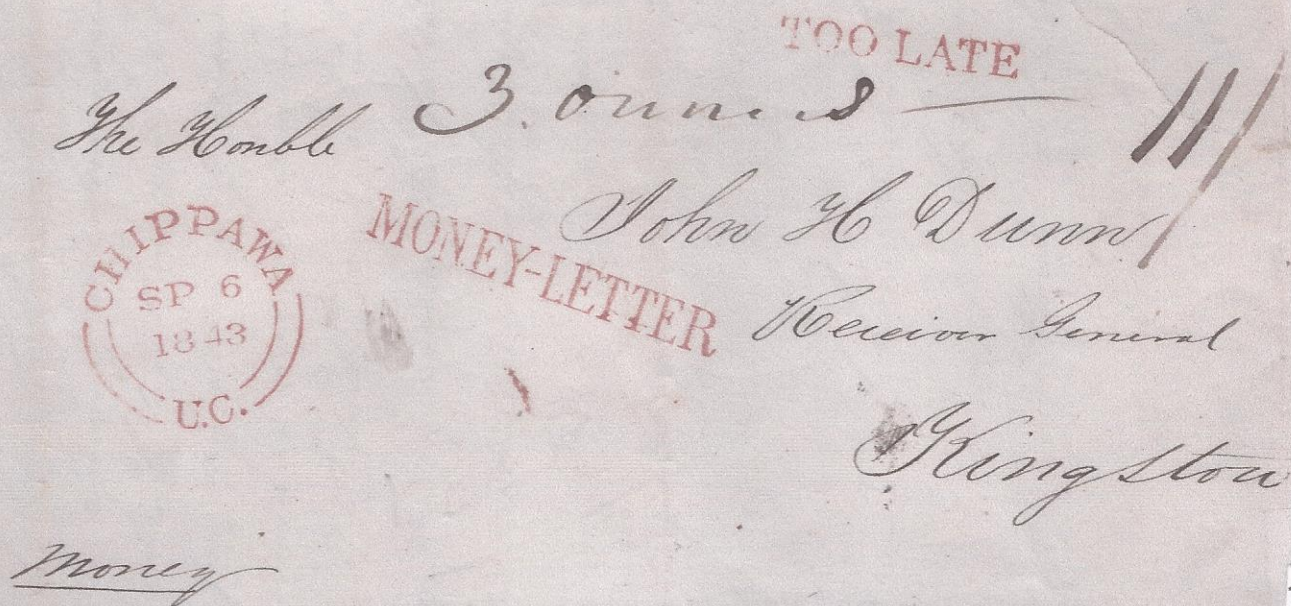 TOO LATE
3. ounces
The Honble
John H Dunn
MONEY-LETTER
CHIPPAWA
SP 6
1843
U.C.
Receiver General
Kingston
Money